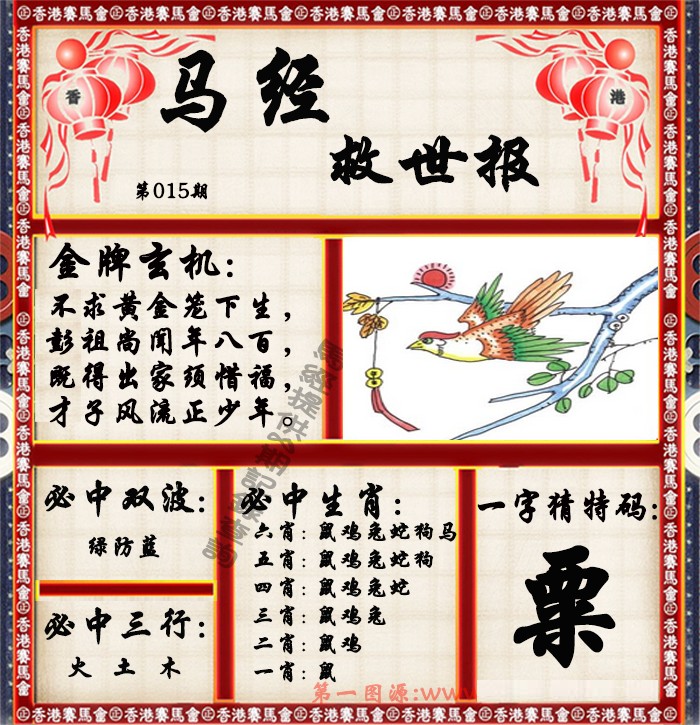 香港賽馬會
香
港
马经
救世报
第015期
金牌玄机:
不求黄金笼下生,
彭祖尚闻年八百,
既得出家须惜福,
才子风流正少年。
必中双波:
绿防蓝
必中三行:
火 土 木
必中生肖:
六肖:鼠鸡兔蛇狗马
五肖:鼠鸡兔蛇狗
四肖:鼠鸡兔蛇
三肖:鼠鸡兔
二肖:鼠鸡
一肖:鼠
一字猜特码:
粟
第一图源:www